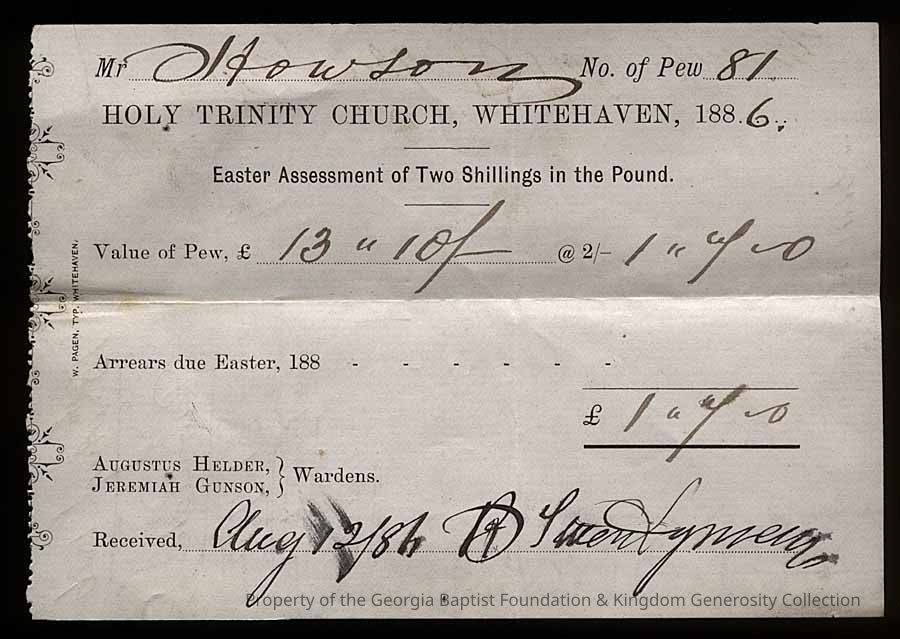 Mr Howson No. of Pew 81
HOLY TRINITY CHURCH, WHITEHAVEN, 1886.
Easter Assessment of Two Shillings in the Pound.
Value of Pew, £ 13 " 10/- @ 2/- 1 " 7 - 0
W. PAGEN, TYP. WHITEHAVEN.
Arrears due Easter, 188 - - - - - -
£ 1 " 7 - 0
AUGUSTUS HELDER, } Wardens.
JEREMIAH GUNSON,
Received, Aug 12/86 Twentyman
Property of the Georgia Baptist Foundation & Kingdom Generosity Collection